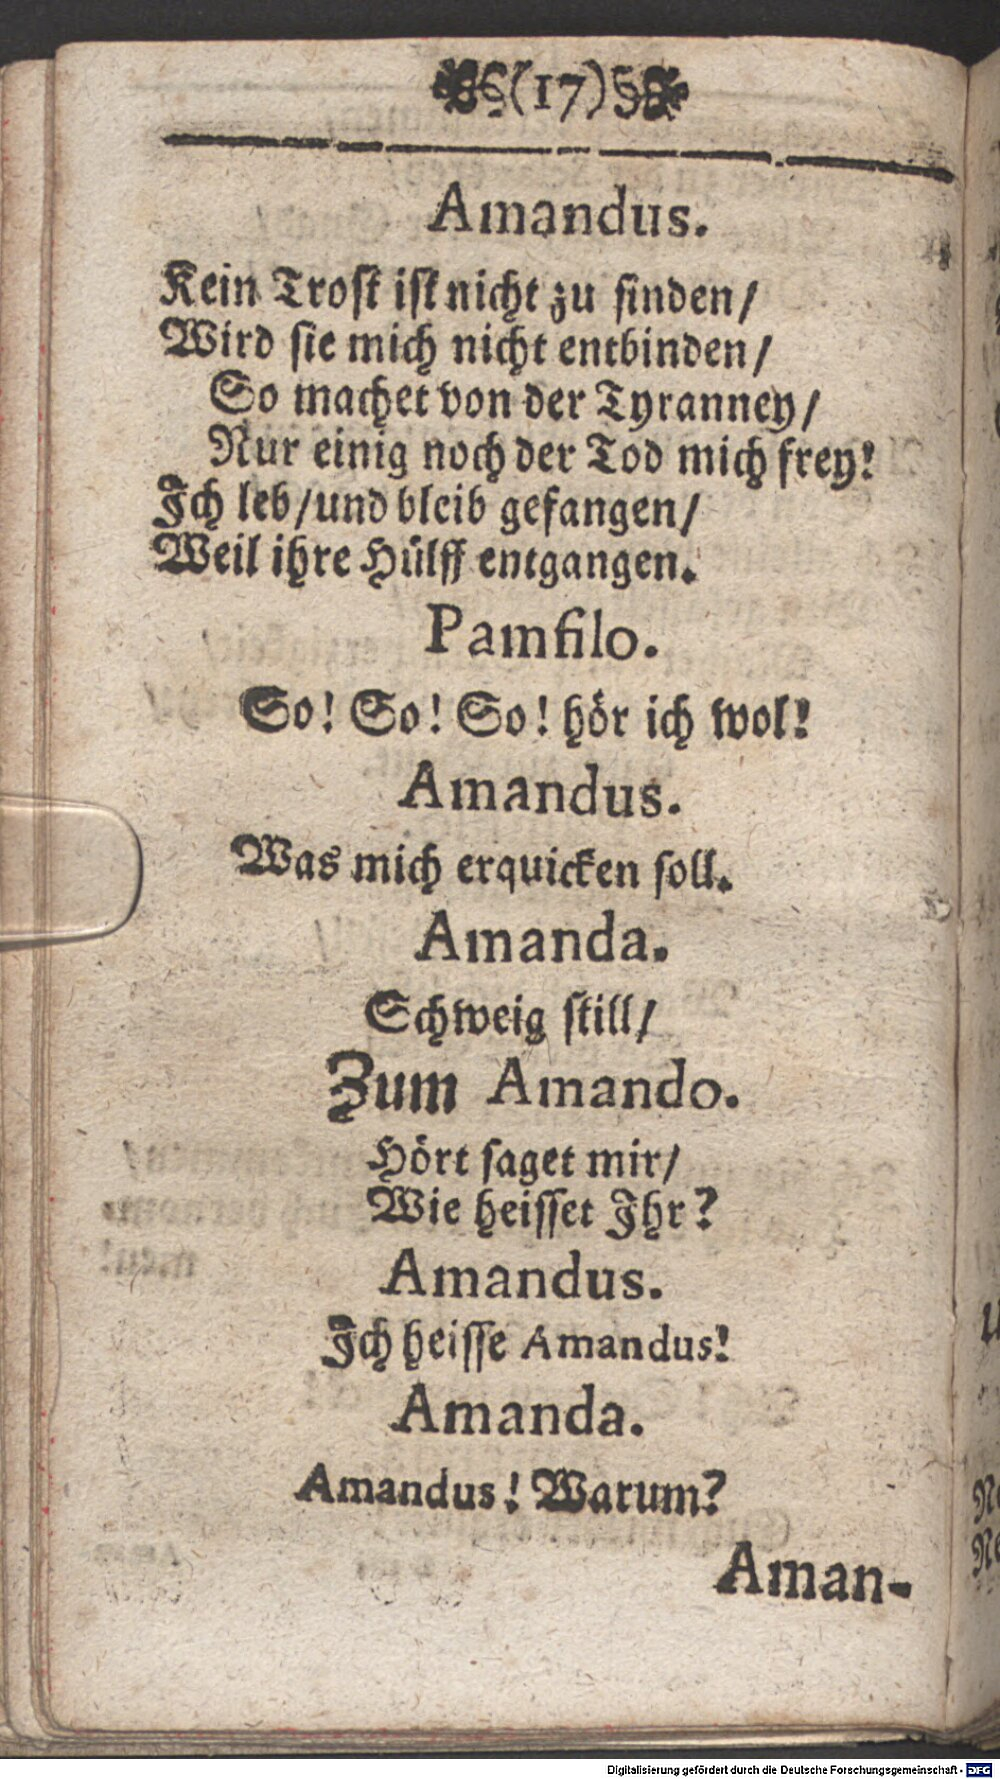 §(17)§
Amandus.
Kein Trost ist nicht zu finden/
Wird sie mich nicht entbinden/
So machet von der Tyranney/
Nur einig noch der Tod mich frey!
Ich leb/und bleib gefangen/
Weil ihre Hülff entgangen.
Pamfilo.
So! So! So! hör ich wol!
Amandus.
Was mich erquicken soll.
Amanda.
Schweig still/
Zum Amando.
Hört saget mir/
Wie heisset Ihr?
Amandus.
Ich heisse Amandus!
Amanda.
Amandus! Warum?
Aman-
Digitalisierung gefördert durch die Deutsche Forschungsgemeinschaft - DFG